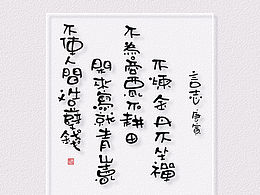 言志 唐寅
不煉金丹不坐禪
不為商賈不耕田
閒來寫就青山賣
不使人間造孽錢